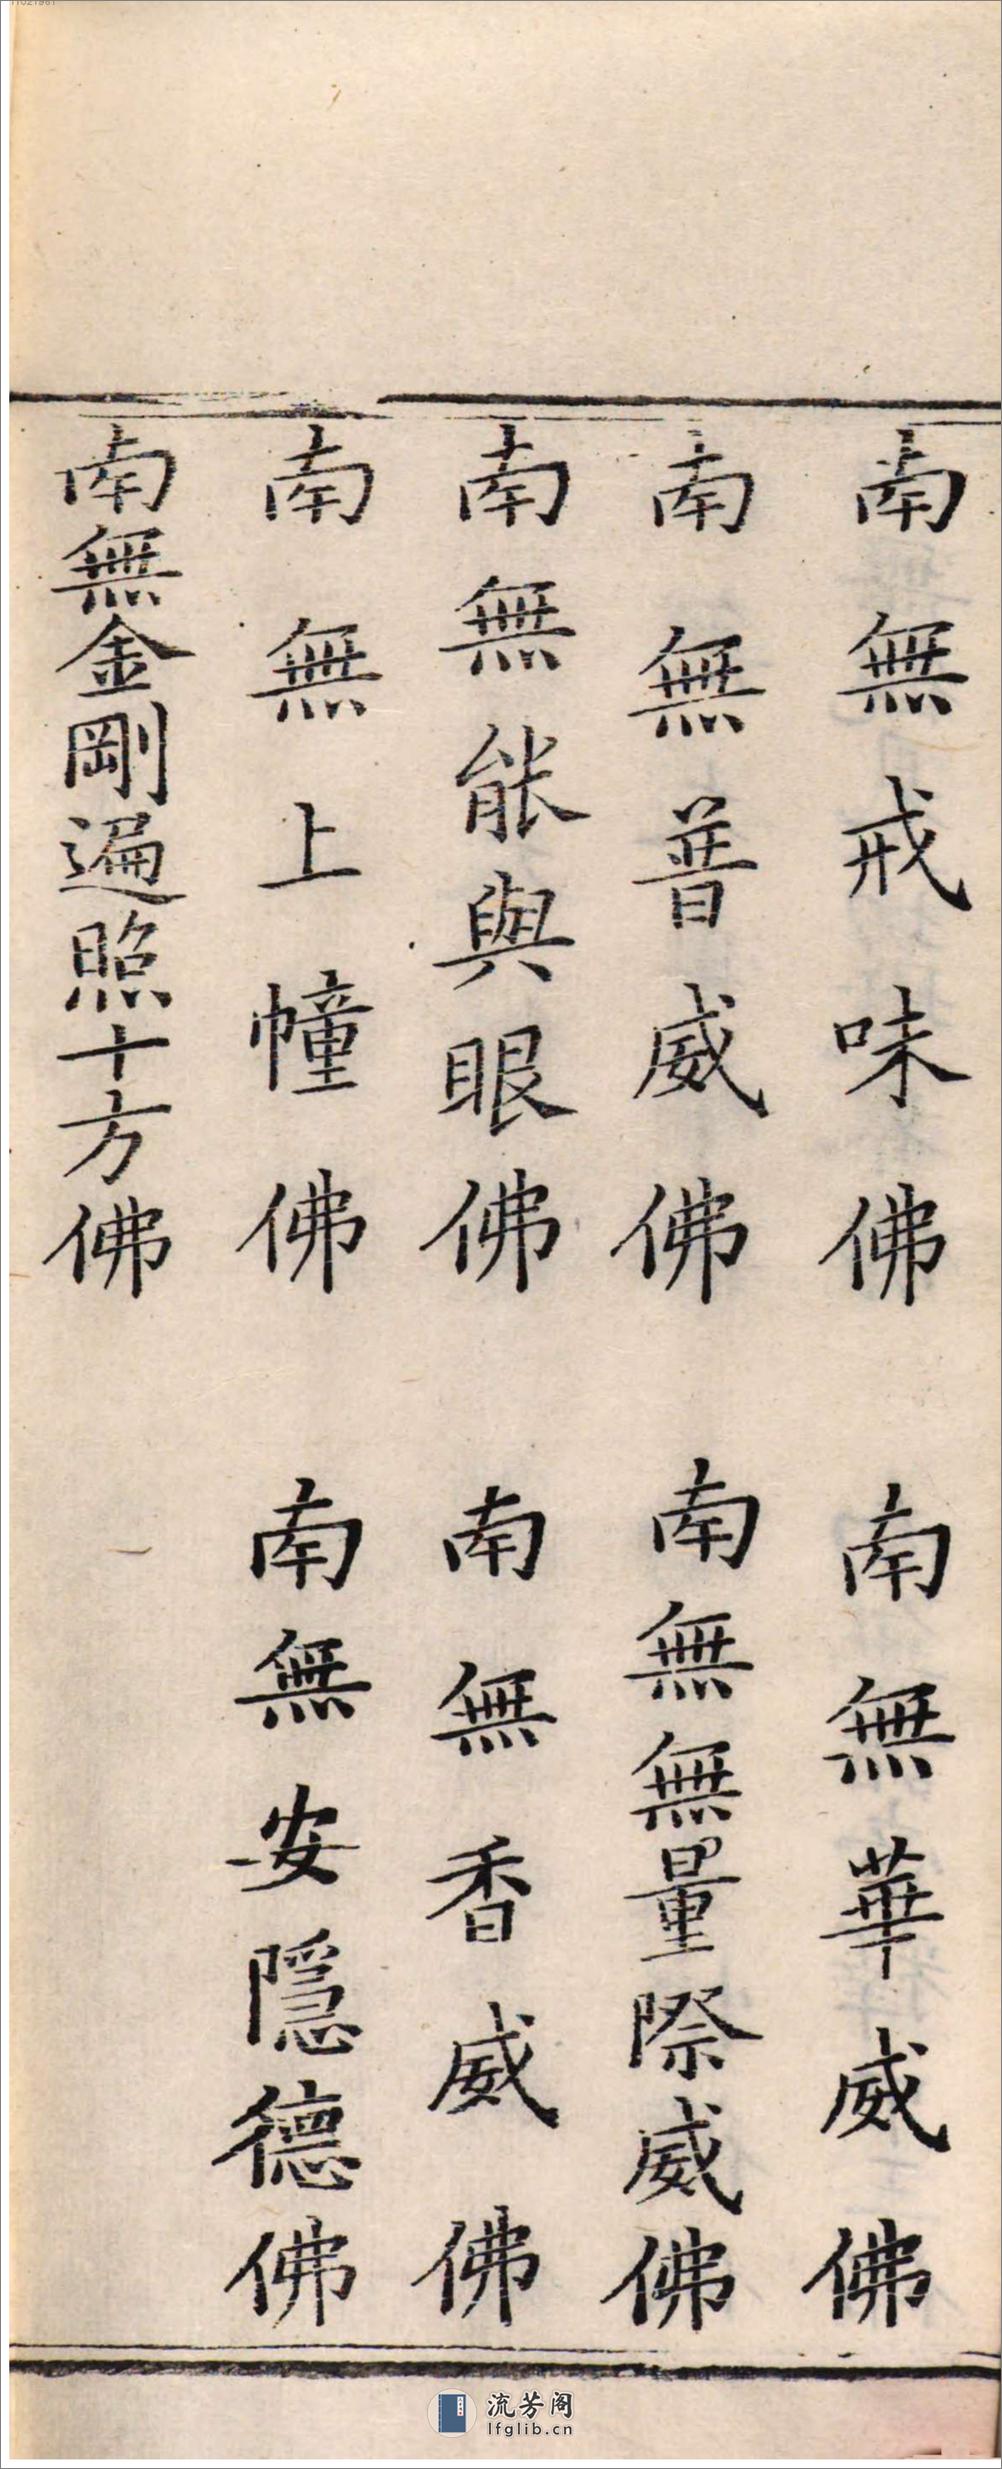 南無戒味佛 南無華威佛
南無普威佛 南無無量際威佛
南無能與眼佛 南無香威佛
南無上幢佛 南無安隱德佛
南無金剛遍照十方佛
流芳阁
lfglib.cn